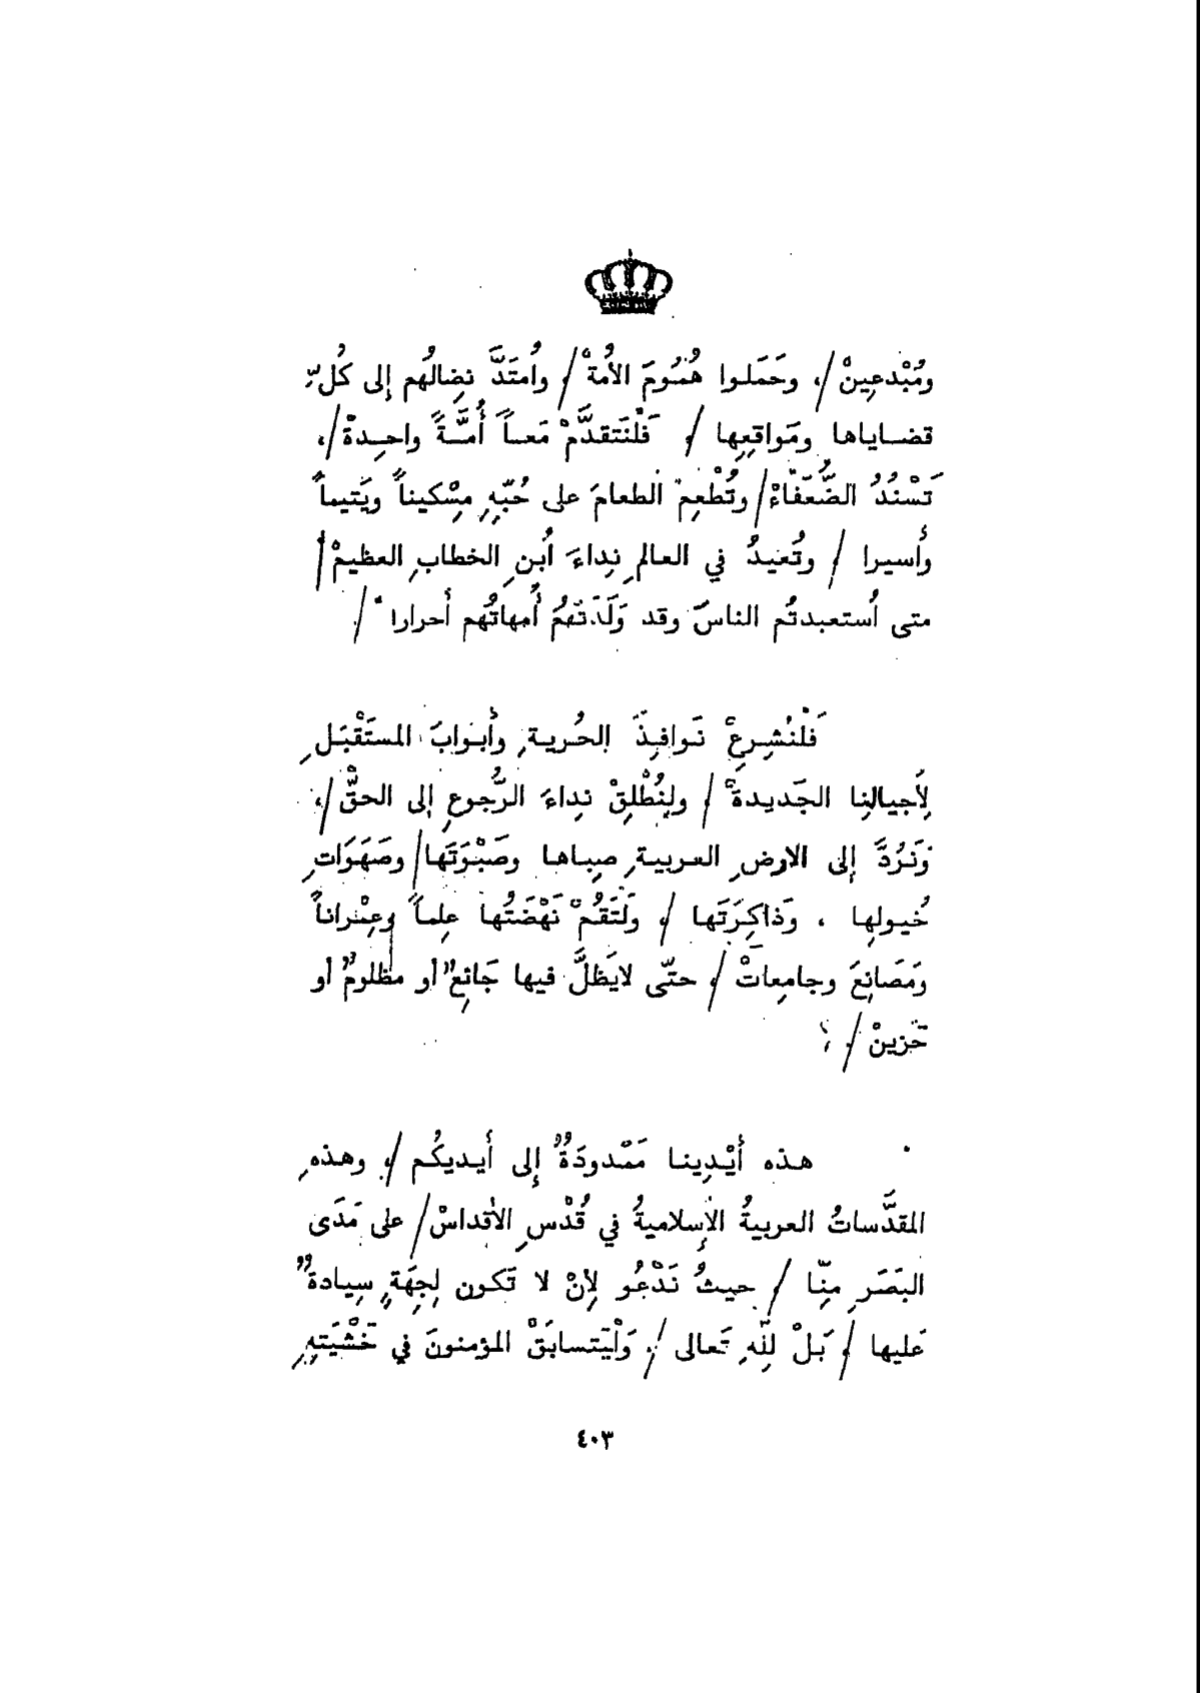 ومُبْدعينْ/، وحَمَلوا هُمُومَ الأُمةْ/، وأمتَدَّ نِضالُهم إلى كُلِّ
قضاياها ومَواقِعِها /، فَلْنَتقدَّمْ مَعاً أُمَّةً واحِدةْ/،
تَسْنُدُ الضُّعَفَاءْ/ وتُطْعِمُ الطعامَ على حُبِّهِ مِسْكيناً ويَتيماً
وأسيرا /، وتُعيدُ في العالمِ نِداءَ أبنِ الخطابِ العظيمْ/
متى أستعبدتُم الناسَ وقد وَلَدَتْهُمُ أُمهاتُهم أحرارا" /.
فَلْنُشرِعْ نَوافِذَ الحُريةِ وأبوابَ المستَقْبَلِ
لِأَجيالِنا الجَديدةْ /، ولنُطْلِقْ نِداءَ الرُّجوعِ إلى الحقّْ/،
ونَرُدَّ إلى الارضِ العربيةِ صِباها وصَبْوَتَها/ وصَهَوَاتِ
خُيولِها ، وَذاكِرَتَها /، ولْتَقُمْ نَهْضَتُها عِلماً وعِمْراناً
ومَصَانِعَ وجامِعاتْ /، حتّى لايَظلَّ فيها جَائِعٌ أو مظلومٌ أو
حَزينْ /.
هذه أيْدِينا مَمْدودَةٌ إلى أيديكُم /، وهذهِ
المقدَّساتُ العربيةُ الإسلاميةُ في قُدْسِ الأقداسْ/ على مَدَى
البَصَرِ مِنّا /، حيثُ نَدْعُو لِأنْ لا تَكون لِجِهَةٍ سِيادةٌ
عَليها /، بَلْ لِلّهِ تَعالى /، وَلْيَتسابَقْ المؤمنونَ في خَشْيَتهِ
٤٠٣